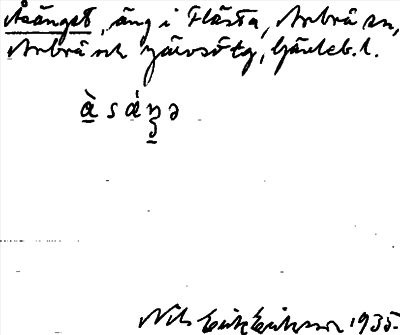 Åsänget, äng i Flästa, Arbrå sn,
Arbrå och Järvsö tg, Gävleb. l.
å̀ s ä́ ŋ ə
Nils Erik Eriksson 1935.